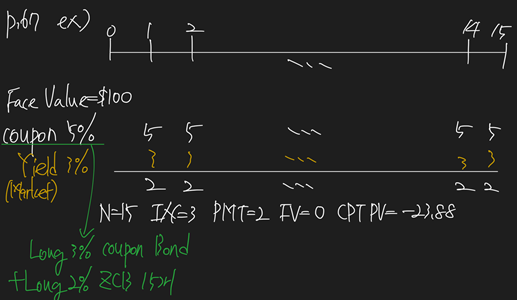 p.67 ex)
0 1 2 14 15
...
Face Value=$100
coupon 5% 5 5 ... 5 5
Yield 3% 3 3 ... 3 3
(Market)
2 2 ... 2 2
N=15 I/Y=3 PMT=2 FV=0 CPT PV= -23.88
Long 3% coupon Bond
+Long 2% ZCB 15개